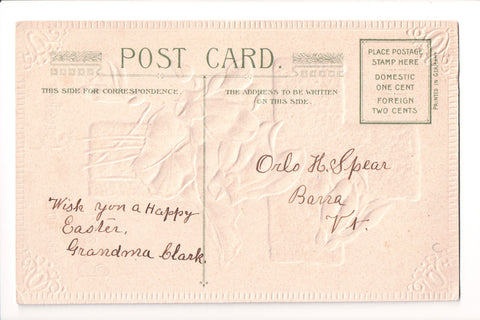 POST CARD.
THIS SIDE FOR CORRESPONDENCE.
THE ADDRESS TO BE WRITTEN
ON THIS SIDE.
PLACE POSTAGE
STAMP HERE
DOMESTIC
ONE CENT
FOREIGN
TWO CENTS
PRINTED IN GERMANY
Orlo H. Spear
Barra
Vt.
Wish you a Happy
Easter,
Grandma Clark.
C